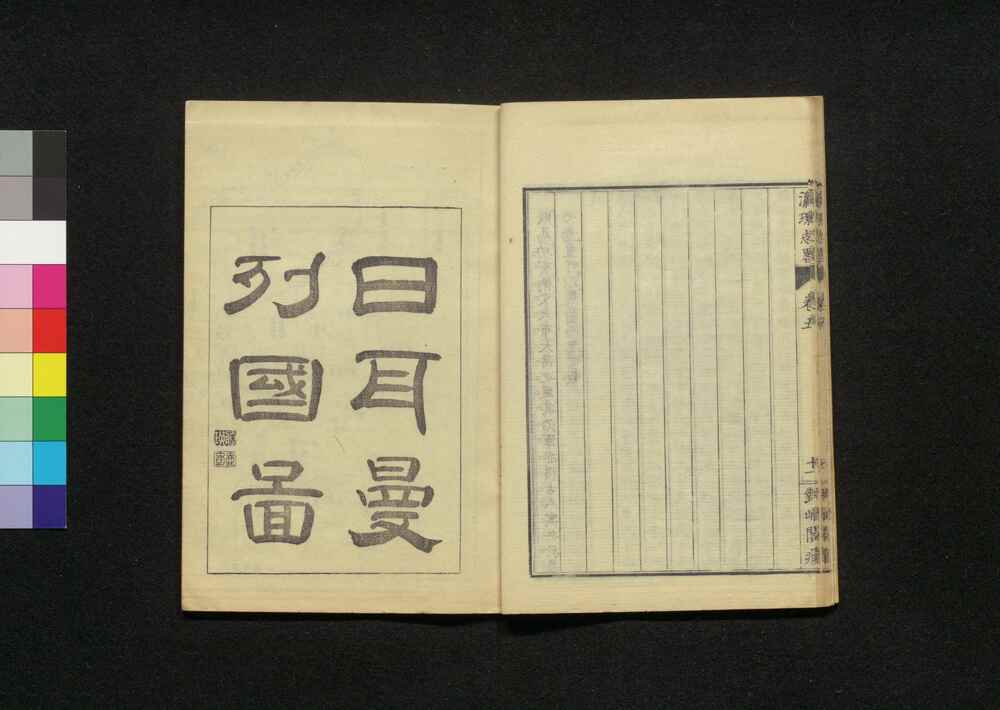 瀛環志畧
卷五
十二
日耳曼
列國圖